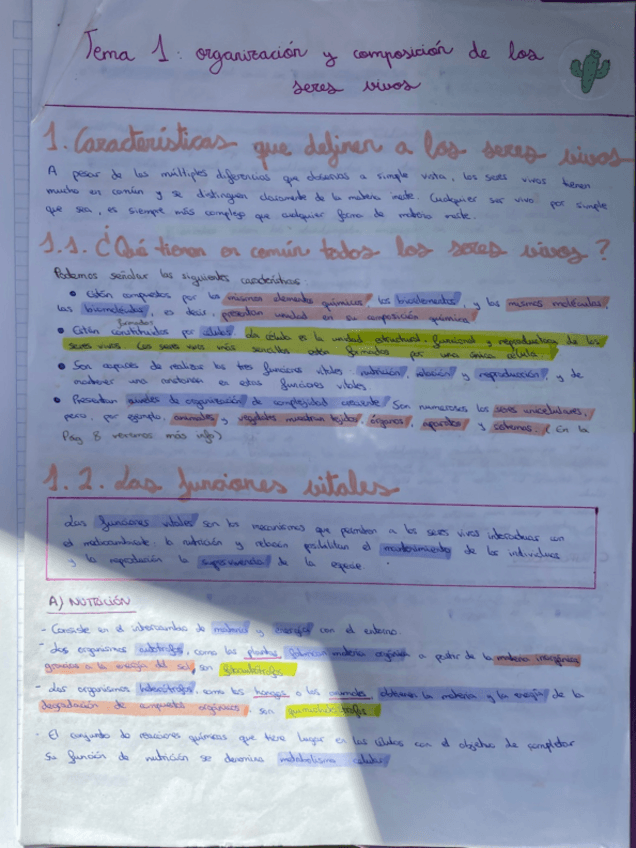 Tema 1: organización y composición de los
seres vivos
1. Características que definen a los seres vivos
A pesar de las múltiples diferencias que observas a simple vista, los seres vivos tienen
mucho en común y se distinguen claramente de la materia inerte. Cualquier ser vivo por simple
que sea, es siempre más complejo que cualquier forma de materia inerte.
1.1. ¿Qué tienen en común todos los seres vivos?
Podemos señalar las siguientes características:
• Están compuestos por los mismos elementos químicos, los bioelementos, y las mismas moléculas,
las biomoléculas, es decir, presentan unidad en su composición química.
formados
• Están constituidos por células. La célula es la unidad estructural, funcional y reproductora de los
seres vivos. Los seres vivos más sencillos están formados por una única célula.
• Son capaces de realizar las tres funciones vitales: nutrición, relación y reproducción, y de
mantener una en estas funciones vitales.
• Presentan niveles de organización de complejidad creciente. Son numerosos los seres unicelulares,
pero, por ejemplo, animales y vegetales muestran tejidos, órganos, aparatos y sistemas. (En la
Pág 8 veremos más info)
1.2. Las funciones vitales
Las funciones vitales son los mecanismos que permiten a los seres vivos interactuar con
el medioambiente. La nutrición y relación posibilitan el mantenimiento de los individuos
y la reproducción la supervivencia de la especie.
A) NUTRICIÓN
- Consiste en el intercambio de materia y energía con el externo.
- Los organismos autótrofos, como las plantas, fabrican materia orgánica a partir de la materia inorgánica
gracias a la energía del sol, son fotoautótrofos
- Los organismos heterótrofos, como los hongos o los animales, obtienen la materia y la energía de la
degradación de compuestos orgánicos, son
- El conjunto de reacciones químicas que tiene lugar en las células con el objetivo de completar
su función de nutrición se denomina metabolismo celular